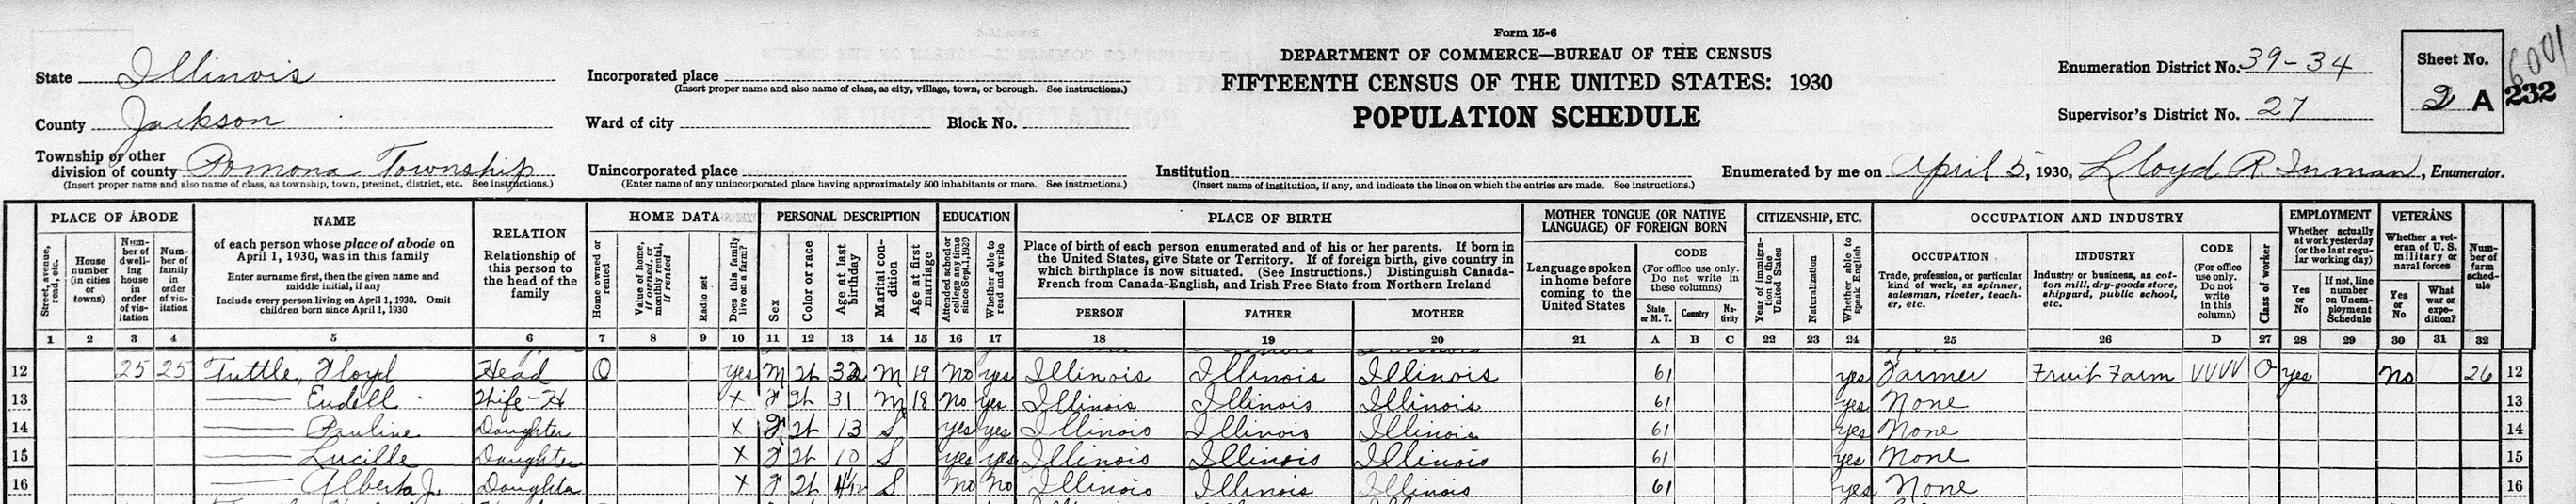 Form 15-6
DEPARTMENT OF COMMERCE—BUREAU OF THE CENSUS
FIFTEENTH CENSUS OF THE UNITED STATES: 1930
POPULATION SCHEDULE
State Illinois
County Jackson
Township or other division of county Pomona Township
(Insert proper name and also name of class, as township, town, precinct, district, etc. See instructions.)
Incorporated place
(Insert proper name and also name of class, as city, village, town, or borough. See instructions.)
Ward of city Block No.
Unincorporated place
(Enter name of any unincorporated place having approximately 500 inhabitants or more. See instructions.)
Institution
(Insert name of institution, if any, and indicate the lines on which the entries are made. See instructions.)
Enumeration District No. 39-34
Supervisor's District No. 27
Sheet No.
2 A
6001
232
Enumerated by me on April 5, 1930, Lloyd R. Inman, Enumerator.
PLACE OF ABODE
Street, avenue, road, etc.
House number (in cities or towns)
Num-ber of dwell-ing house in order of vis-itation
Num-ber of family in order of vis-itation
NAME
of each person whose place of abode on April 1, 1930, was in this family
Enter surname first, then the given name and middle initial, if any
Include every person living on April 1, 1930. Omit children born since April 1, 1930
RELATION
Relationship of this person to the head of the family
HOME DATA
Home owned or rented
Value of home, if owned, or monthly rental, if rented
Radio set
Does this family live on a farm?
PERSONAL DESCRIPTION
Sex
Color or race
Age at last birthday
Marital con-dition
Age at first marriage
EDUCATION
Attended school or college any time since Sept. 1, 1929
Whether able to read and write
PLACE OF BIRTH
Place of birth of each person enumerated and of his or her parents. If born in the United States, give State or Territory. If of foreign birth, give country in which birthplace is now situated. (See Instructions.) Distinguish Canada-French from Canada-English, and Irish Free State from Northern Ireland
PERSON FATHER MOTHER
MOTHER TONGUE (OR NATIVE LANGUAGE) OF FOREIGN BORN
Language spoken in home before coming to the United States
CODE
(For office use only. Do not write in these columns)
State or M. T. Country Na-tivity
CITIZENSHIP, ETC.
Year of immigra-tion to the United States
Naturalization
Whether able to speak English
OCCUPATION AND INDUSTRY
OCCUPATION
Trade, profession, or particular kind of work, as spinner, salesman, riveter, teach-er, etc.
INDUSTRY
Industry or business, as cot-ton mill, dry-goods store, shipyard, public school, etc.
CODE
(For office use only. Do not write in this column)
Class of worker
EMPLOYMENT
Whether actually at work yesterday (or the last regu-lar working day)
Yes or No
If not, line number on Unem-ployment Schedule
VETERANS
Whether a vet-eran of U. S. military or naval forces
Yes or No
What war or expe-dition?
Num-ber of farm sched-ule
1 2 3 4 5 6 7 8 9 10 11 12 13 14 15 16 17 18 19 20 21 A B C 22 23 24 25 26 D 27 28 29 30 31 32
12 25 25 Tuttle, Floyd Head O yes M W 32 M 19 No yes Illinois Illinois Illinois 61 yes Farmer Fruit Farm VVVV O yes No 26 12
13 Eudell Wife-H X F W 31 M 18 No yes Illinois Illinois Illinois 61 yes None 13
14 Pauline Daughter X F W 13 S yes yes Illinois Illinois Illinois 61 yes None 14
15 Lucille Daughter X F W 10 S yes yes Illinois Illinois Illinois 61 yes None 15
16 Alberta J. Daughter X F W 4/12 S No No Illinois Illinois Illinois 61 yes None 16